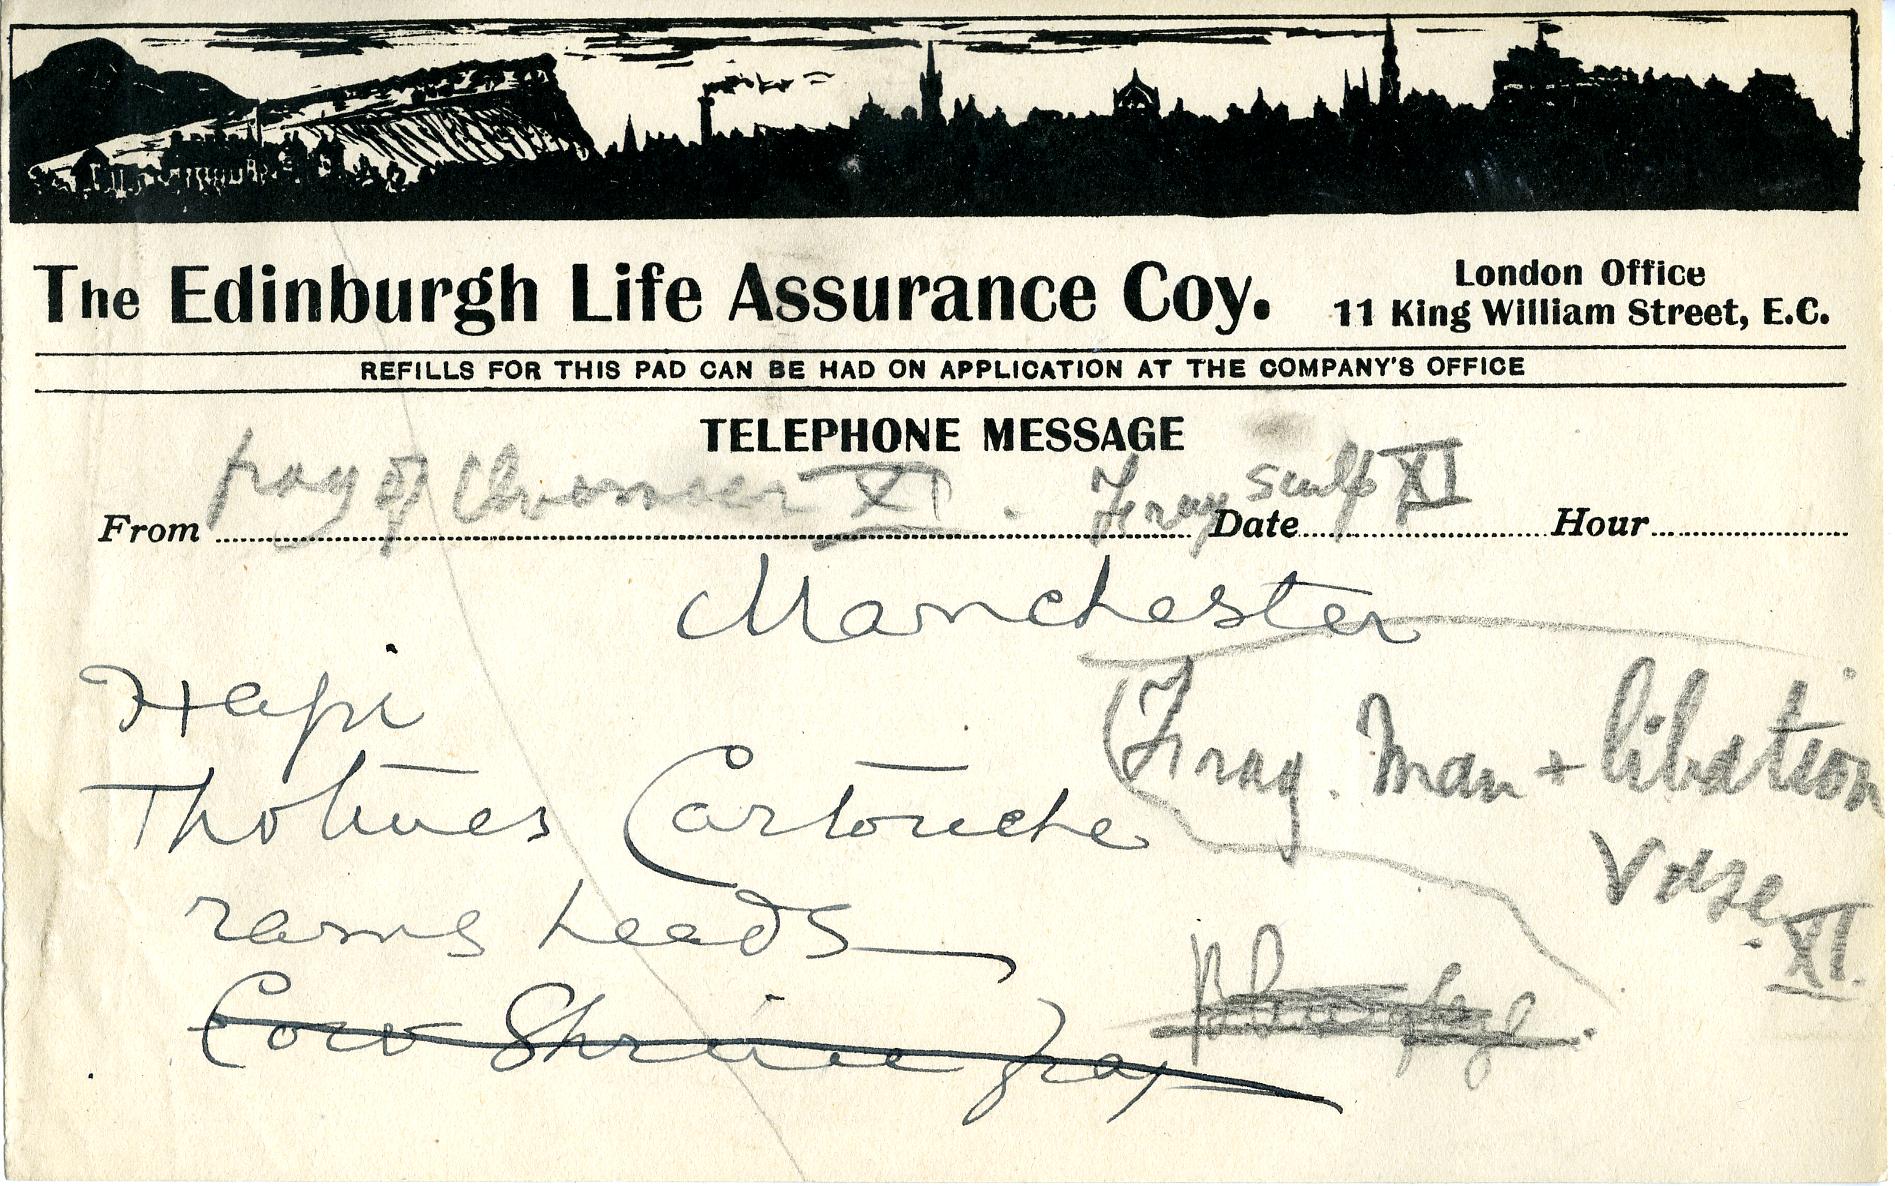 The Edinburgh Life Assurance Coy.
London Office
11 King William Street, E.C.
REFILLS FOR THIS PAD CAN BE HAD ON APPLICATION AT THE COMPANY'S OFFICE
TELEPHONE MESSAGE
frag of XI. Frag sculp XI
From Date Hour
Manchester
Hapi
Frag. Man + libation
Thotmes Cartouche
Vase. XI.
rams heads
Cow Shrine frag